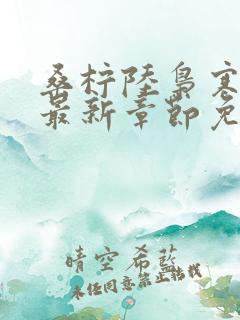 桑柠陆枭寒
最新章節免
晴空希藍
未经同意禁止转载